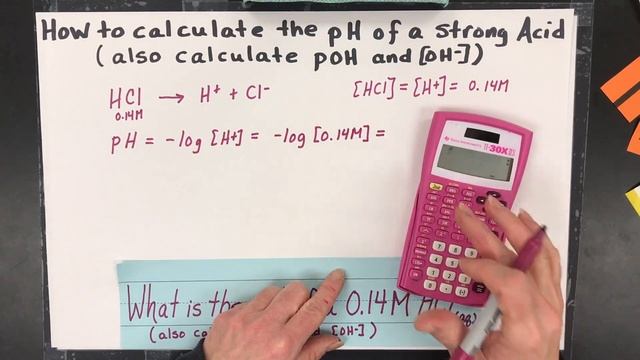 How to calculate the pH of a strong Acid
(also calculate pOH and [OH-])
HCl → H+ + Cl-
0.14M
[HCl] = [H+] = 0.14M
pH = -log [H+] = -log [0.14M] =
TI-30X IIS
What is the 0.14M
(also [OH-])